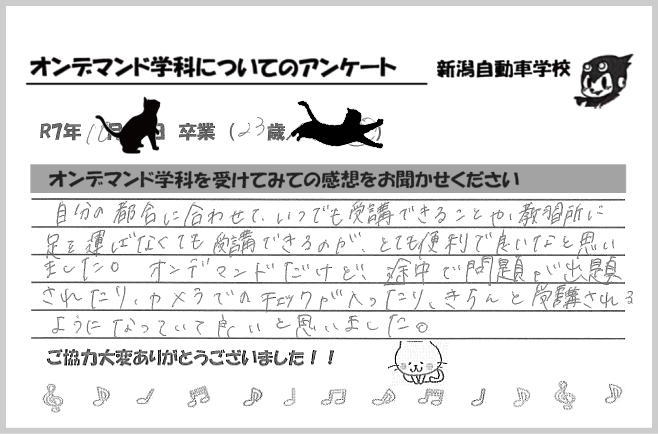 オンデマンド学科についてのアンケート 新潟自動車学校
R7年 月 日 卒業 (23歳
オンデマンド学科を受けてみての感想をお聞かせください
自分の都合に合わせて、いつでも受講できることや、教習所に
足を運ばなくても受講できるのが、とても便利で良いなと思い
ました。オンデマンドだけど、途中で問題が出題
されたり、カメラでのチェックが入ったり、きちんと受講される
ようになっていて良いと思いました。
ご協力大変ありがとうございました!!